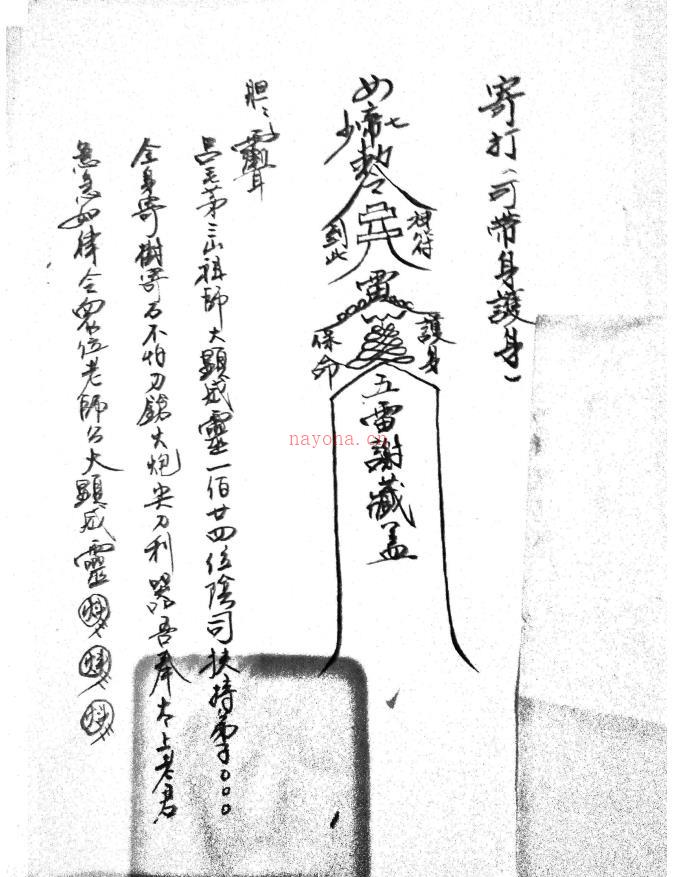 寄打（可帶身護身）
敕令
祖符
到此
雷
護身
保命
五雷謝藏蓋
呂毛茅三山祖師大顯威靈一佰廿四位陰司扶持弟子○○○
全身寄樹寄石不怕刀鎗大炮尖刀利器吾奉太上老君
急急如律令眾位老師公大顯威靈
nayona.cn